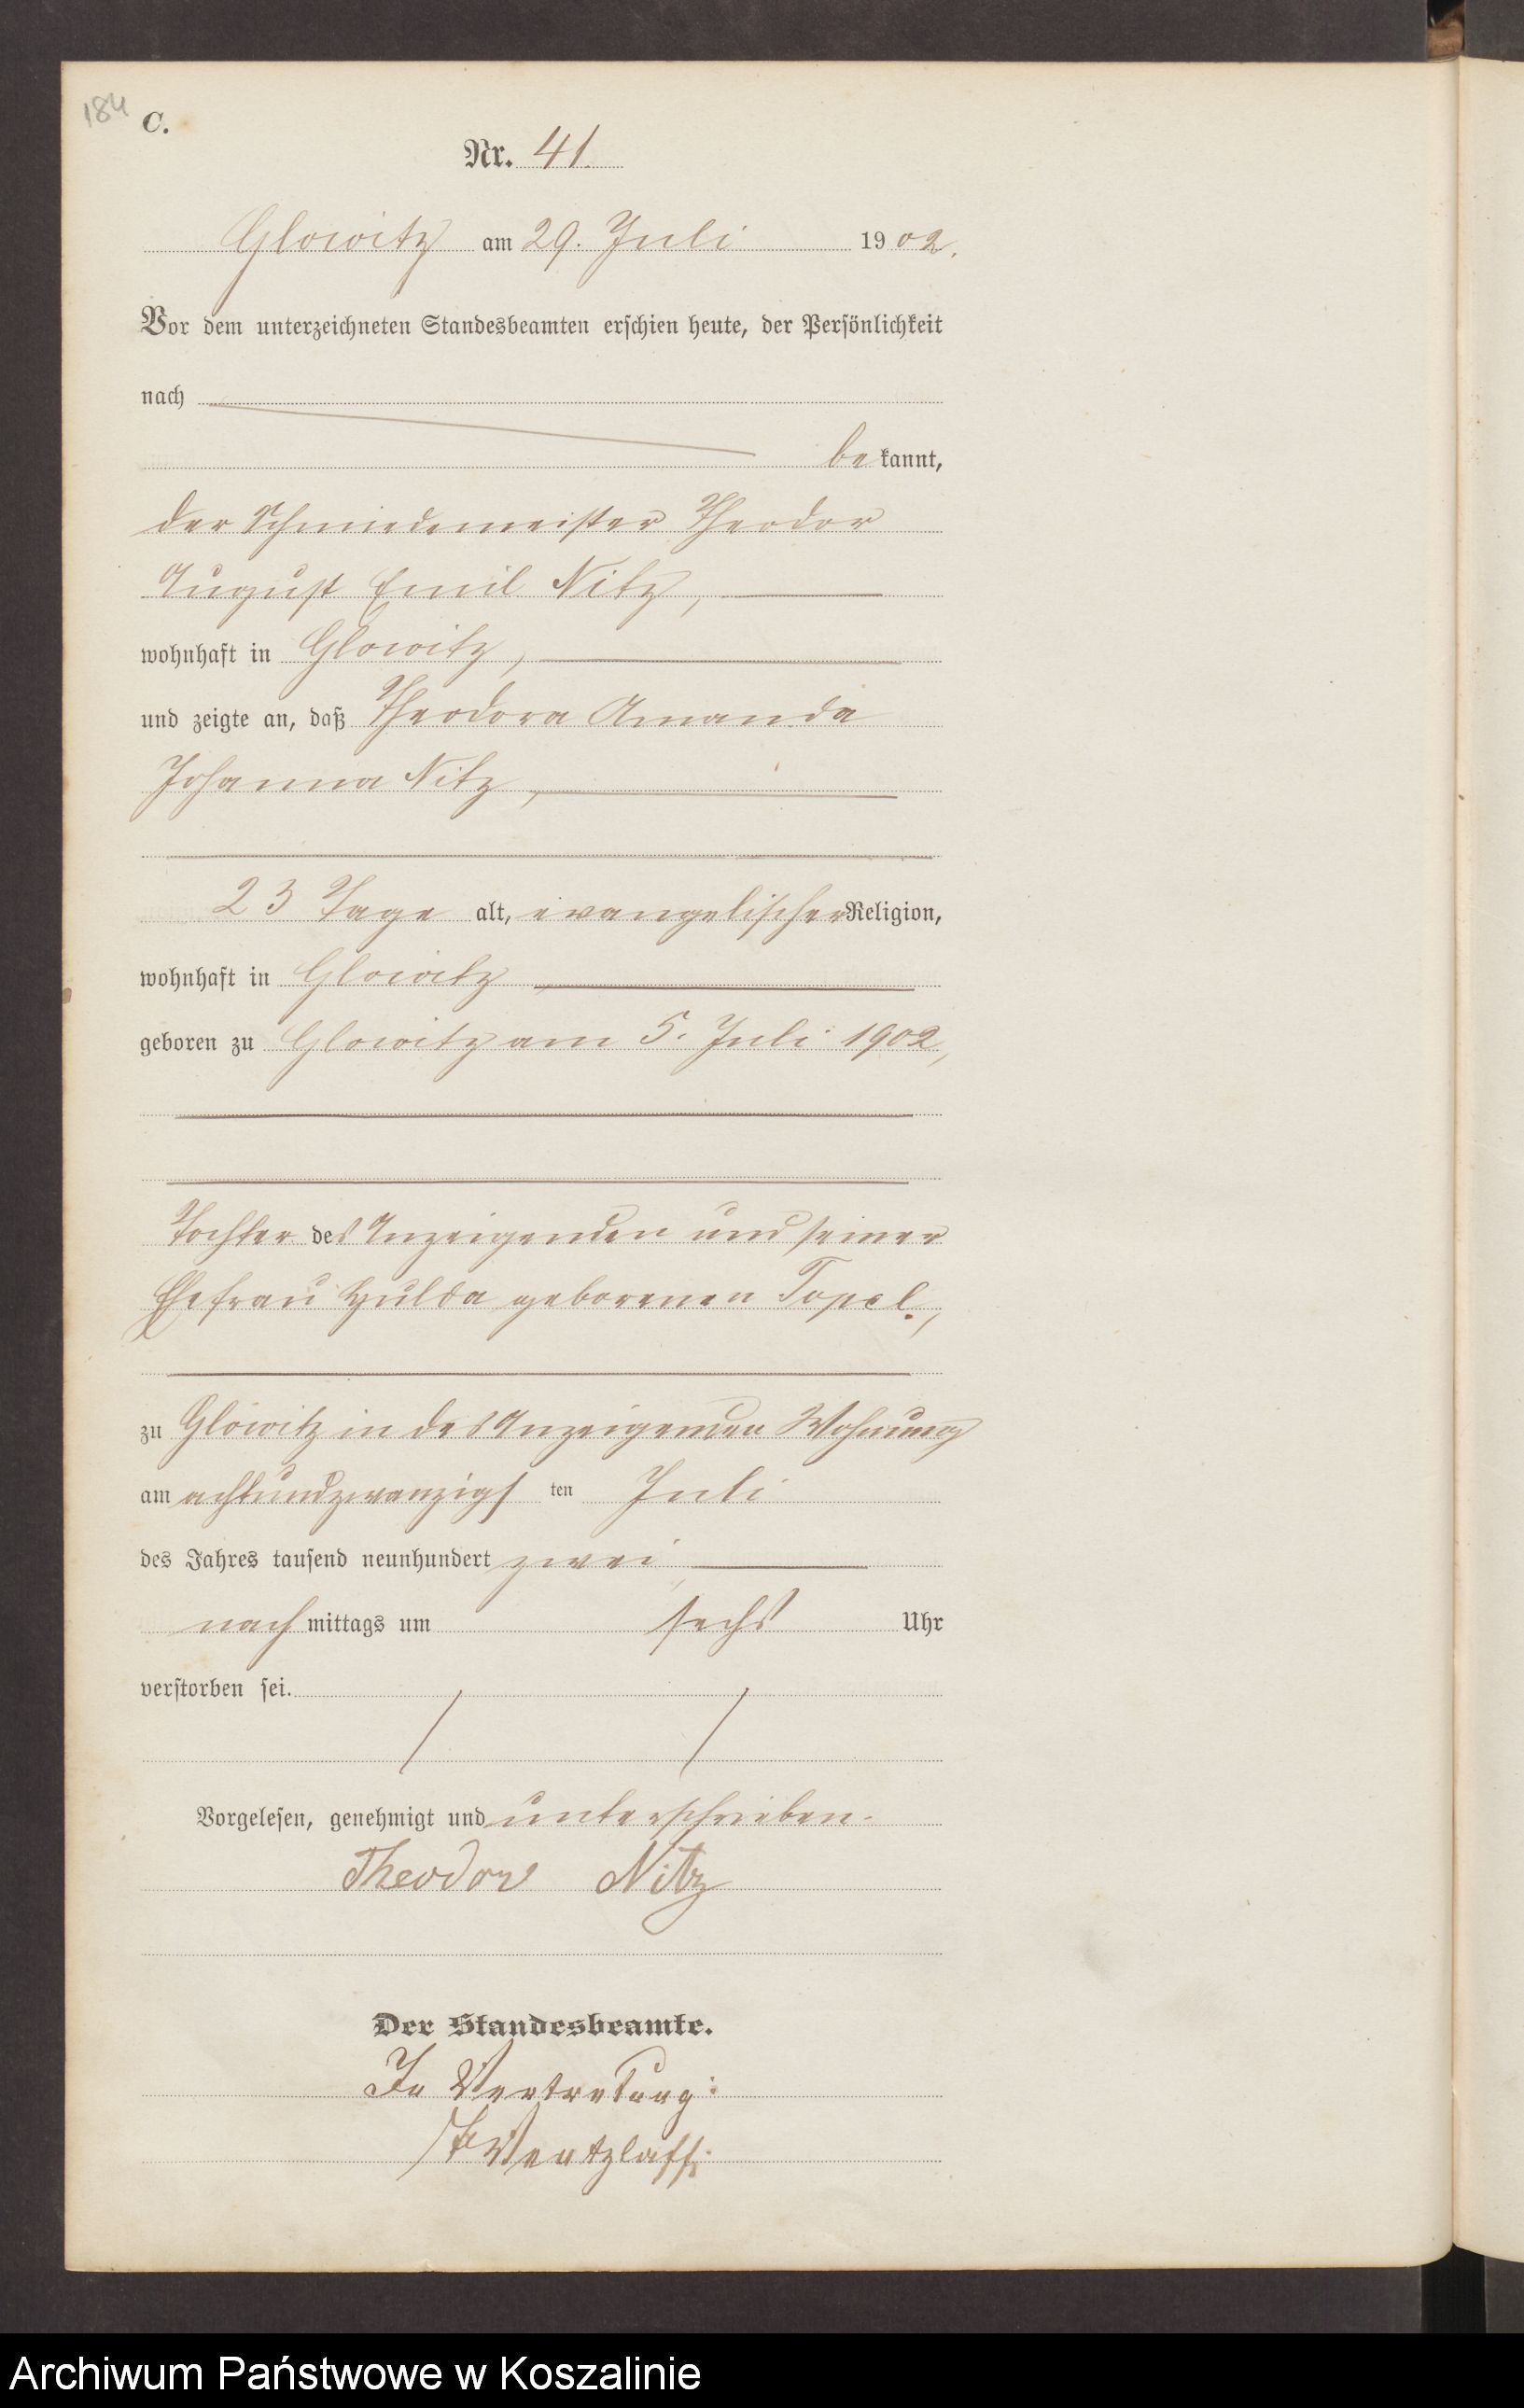 184
C.
Nr. 41.
Glowitz am 29. Juli 1902.
Vor dem unterzeichneten Standesbeamten erschien heute, der Persönlichkeit
nach
bekannt,
der Schmiedemeister Theodor
August Emil Nitz,
wohnhaft in Glowitz,
und zeigte an, daß Theodora Amanda
Johanna Nitz,
23 Tage alt, evangelischer Religion,
wohnhaft in Glowitz,
geboren zu Glowitz am 5. Juli 1902,
Tochter des Anzeigenden und seiner
Ehefrau Hulda geborenen Topel,
zu Glowitz in des Anzeigenden Wohnung
am achtundzwanzigsten Juli
des Jahres tausend neunhundert zwei,
nachmittags um sechs Uhr
verstorben sei.
Vorgelesen, genehmigt und unterschrieben.
Theodor Nitz
Der Standesbeamte.
In Vertretung:
Wentzlaff.
Archiwum Państwowe w Koszalinie